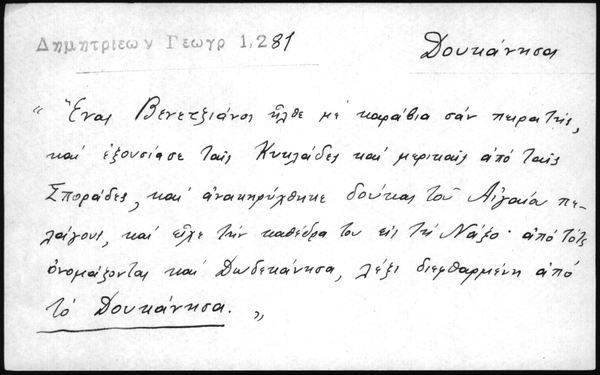 Δημητριεων Γεωγρ 1,281
Δουκάνησα
" Ἕνας Βενετζιάνος ἦλθε μέ καράβια σάν πειρατής,
καί ἐξουσίασε ταῖς Κυκλάδες καί μερικαῖς ἀπό ταῖς
Σποράδες, καί ἀνακηρύχθηκε δούκας τοῦ Αἰγαίου πε-
λάγους, καί εἶχε τήν καθέδρα του εἰς τή Νάξο· ἀπό τότε
ὀνομάζονται καί Δωδεκάνησα, λέξι διεφθαρμένη ἀπό
τό Δουκάνησα. "